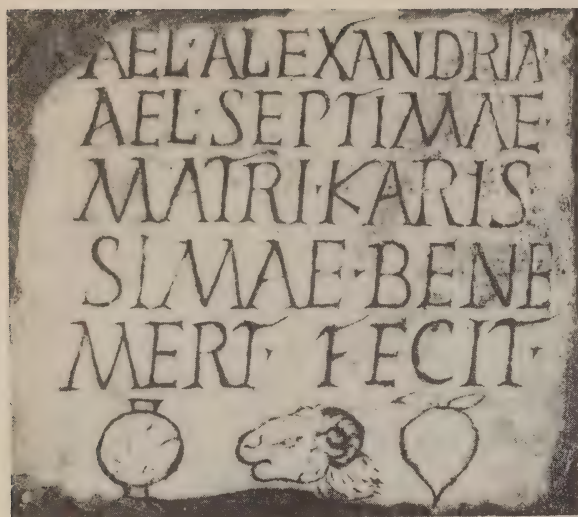 AEL·ALEXANDRIA·
AEL·SEPTIMAE·
MATRI·KARIS
SIMAE·BENE
MERT· FECIT·